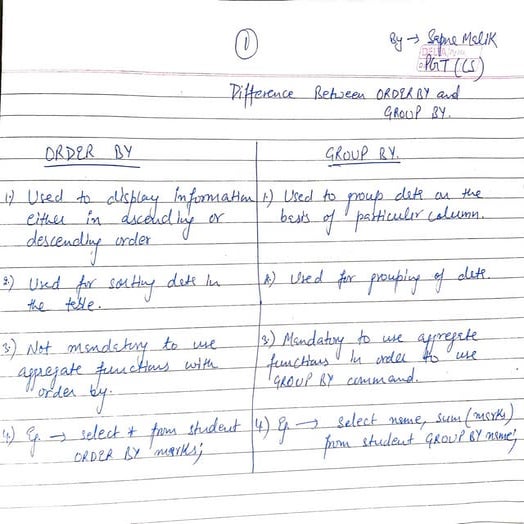 1
By → Sapna Malik
PGT (CS)
Difference Between ORDER BY and
GROUP BY.
ORDER BY
1) Used to display information
either in ascending or
descending order
2) Used for sorting data in
the table.
3) Not mandatory to use
aggregate functions with
order by.
4) Eg → select * from student
ORDER BY marks;
GROUP BY.
1) Used to group data on the
basis of particular column.
2) Used for grouping of data.
3) Mandatory to use aggregate
functions in order to use
GROUP BY command.
4) Eg → select name, sum(marks)
from student GROUP BY name;